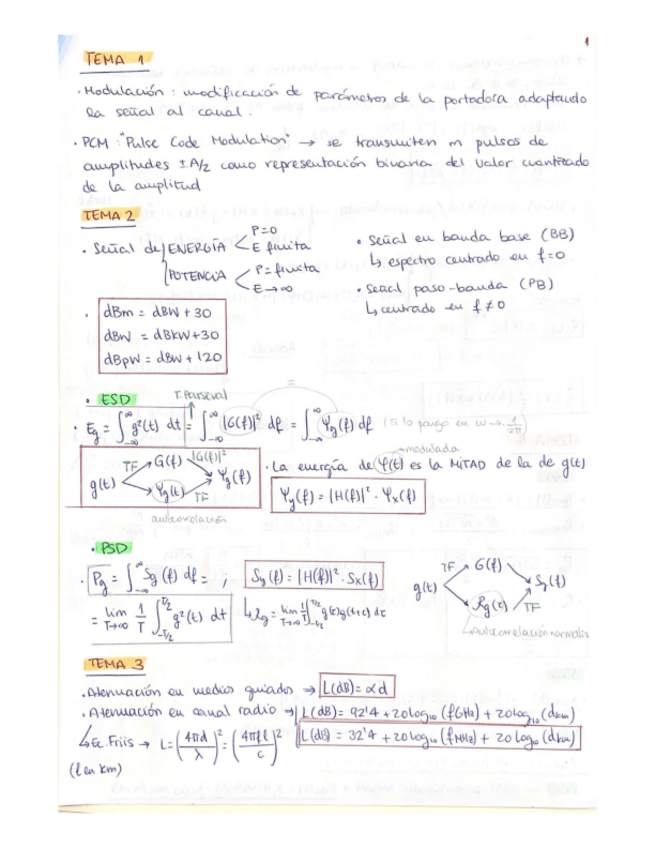 1
TEMA 1
· Modulación : modificación de parámetros de la portadora adaptando
la señal al canal.
· PCM : "Pulse Code Modulation" → se transmiten m pulsos de
amplitudes ±A/2 como representación binaria del valor cuantizado
de la amplitud
TEMA 2
· Señal de ENERGÍA < P=0
E finita
POTENCIA < P=finita
E→∞
· Señal en banda base (BB)
↳ espectro centrado en f=0
· Señal paso-banda (PB)
↳ centrado en f≠0
· dBm = dBW + 30
dBW = dBkW+30
dBpW = dBW + 120
· ESD
T. Parseval
=
· Eg = ∫_{-∞}^{∞} g²(t) dt = ∫_{-∞}^{∞} |G(f)|² df = ∫_{-∞}^{∞} Ψg(f) df (si lo pongo en w → 1/2π)
g(t) TF G(f) |G(f)|² Ψg(f)
Ψg(t) TF
autocorrelación
modulada
· La energía de φ(t) es la MITAD de la de g(t)
Ψy(f) = |H(f)|² · Ψx(f)
· PSD
· Pg = ∫_{-∞}^{∞} Sg(f) df = ;
= lim_{T→∞} 1/T ∫_{-T/2}^{T/2} g²(t) dt
Sy(f) = |H(f)|² · Sx(f)
↳ Rg = lim_{T→∞} 1/T ∫_{-T/2}^{T/2} g(t)g(t+τ) dτ
g(t) TF G(f) Sg(f)
Rg(τ) TF
↳ Autocorrelación normaliz
TEMA 3
· Atenuación en medios guiados → L(dB)= αd
· Atenuación en canal radio → L(dB) = 92'4 + 20log₁₀(fGHz) + 20log₁₀(dkm)
↳ Ec. Friis → L = (4πd/λ)² = (4πfl/c)²
L(dB) = 32'4 + 20log₁₀(fMHz) + 20log₁₀(dkm)
(l en km)